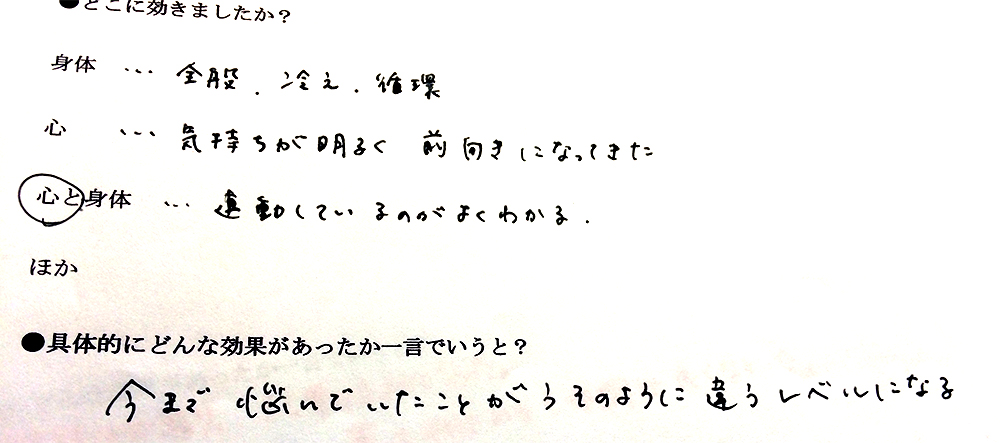 ●どこに効きましたか？
身体 … 全般．冷え．循環
心 … 気持ちが明るく 前向きになってきた
心と身体 … 連動しているのがよくわかる．
ほか
●具体的にどんな効果があったか一言でいうと？
今まで悩んでいたことがうそのように違うレベルになる